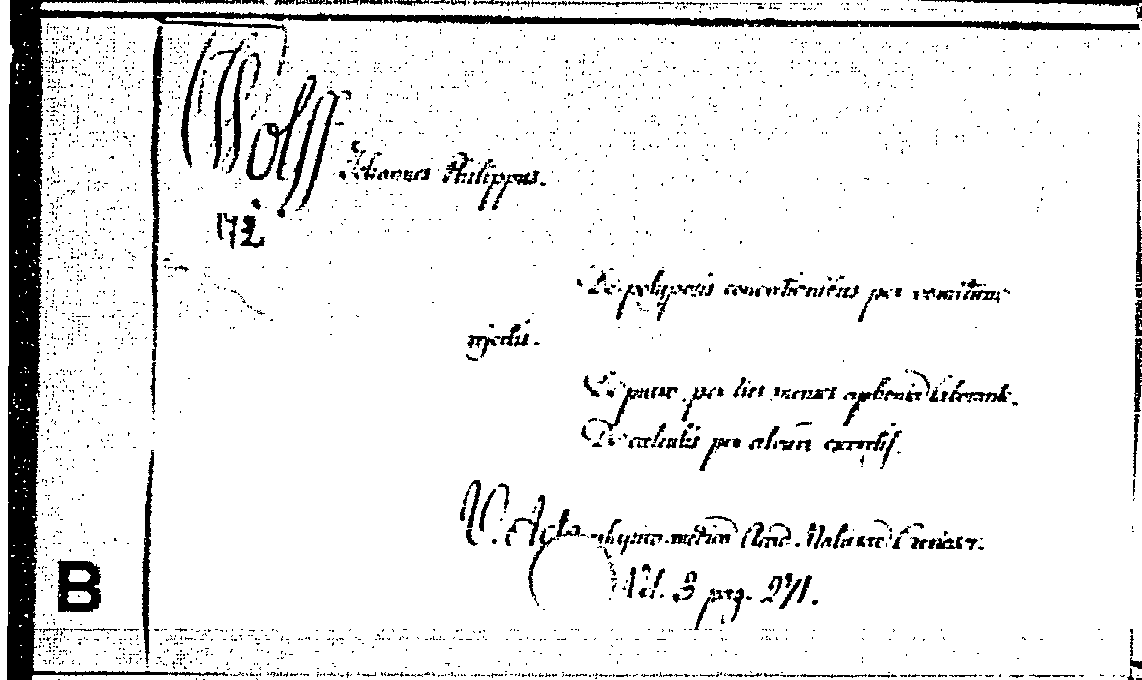 Wolff Johannes Philippus.
172
De polyposis concretionibus per vomitum
rejectis.
De puero per tres menses aphonia laborante.
De calculis per alvum excretis.
V. Acta physico-medica Acad. Naturae Curiosor.
Vol. 3 pag. 271.
B